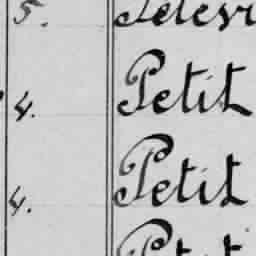 5.
4. Petit
4. Petit